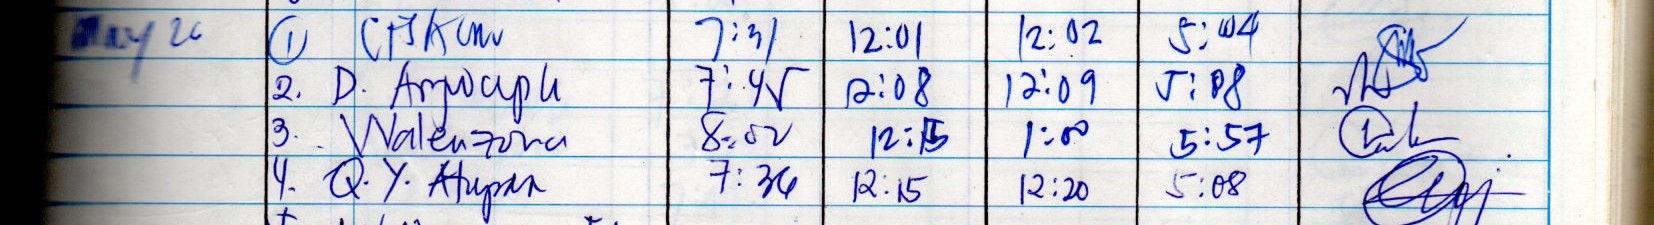 May 26 1 7:31 12:01 12:02 5:04
2. D. 7:45 12:08 12:09 5:08
3. Walenzona 8:02 12:15 1:00 5:57
4. Q. Y. Atupan 7:36 12:15 12:20 5:08